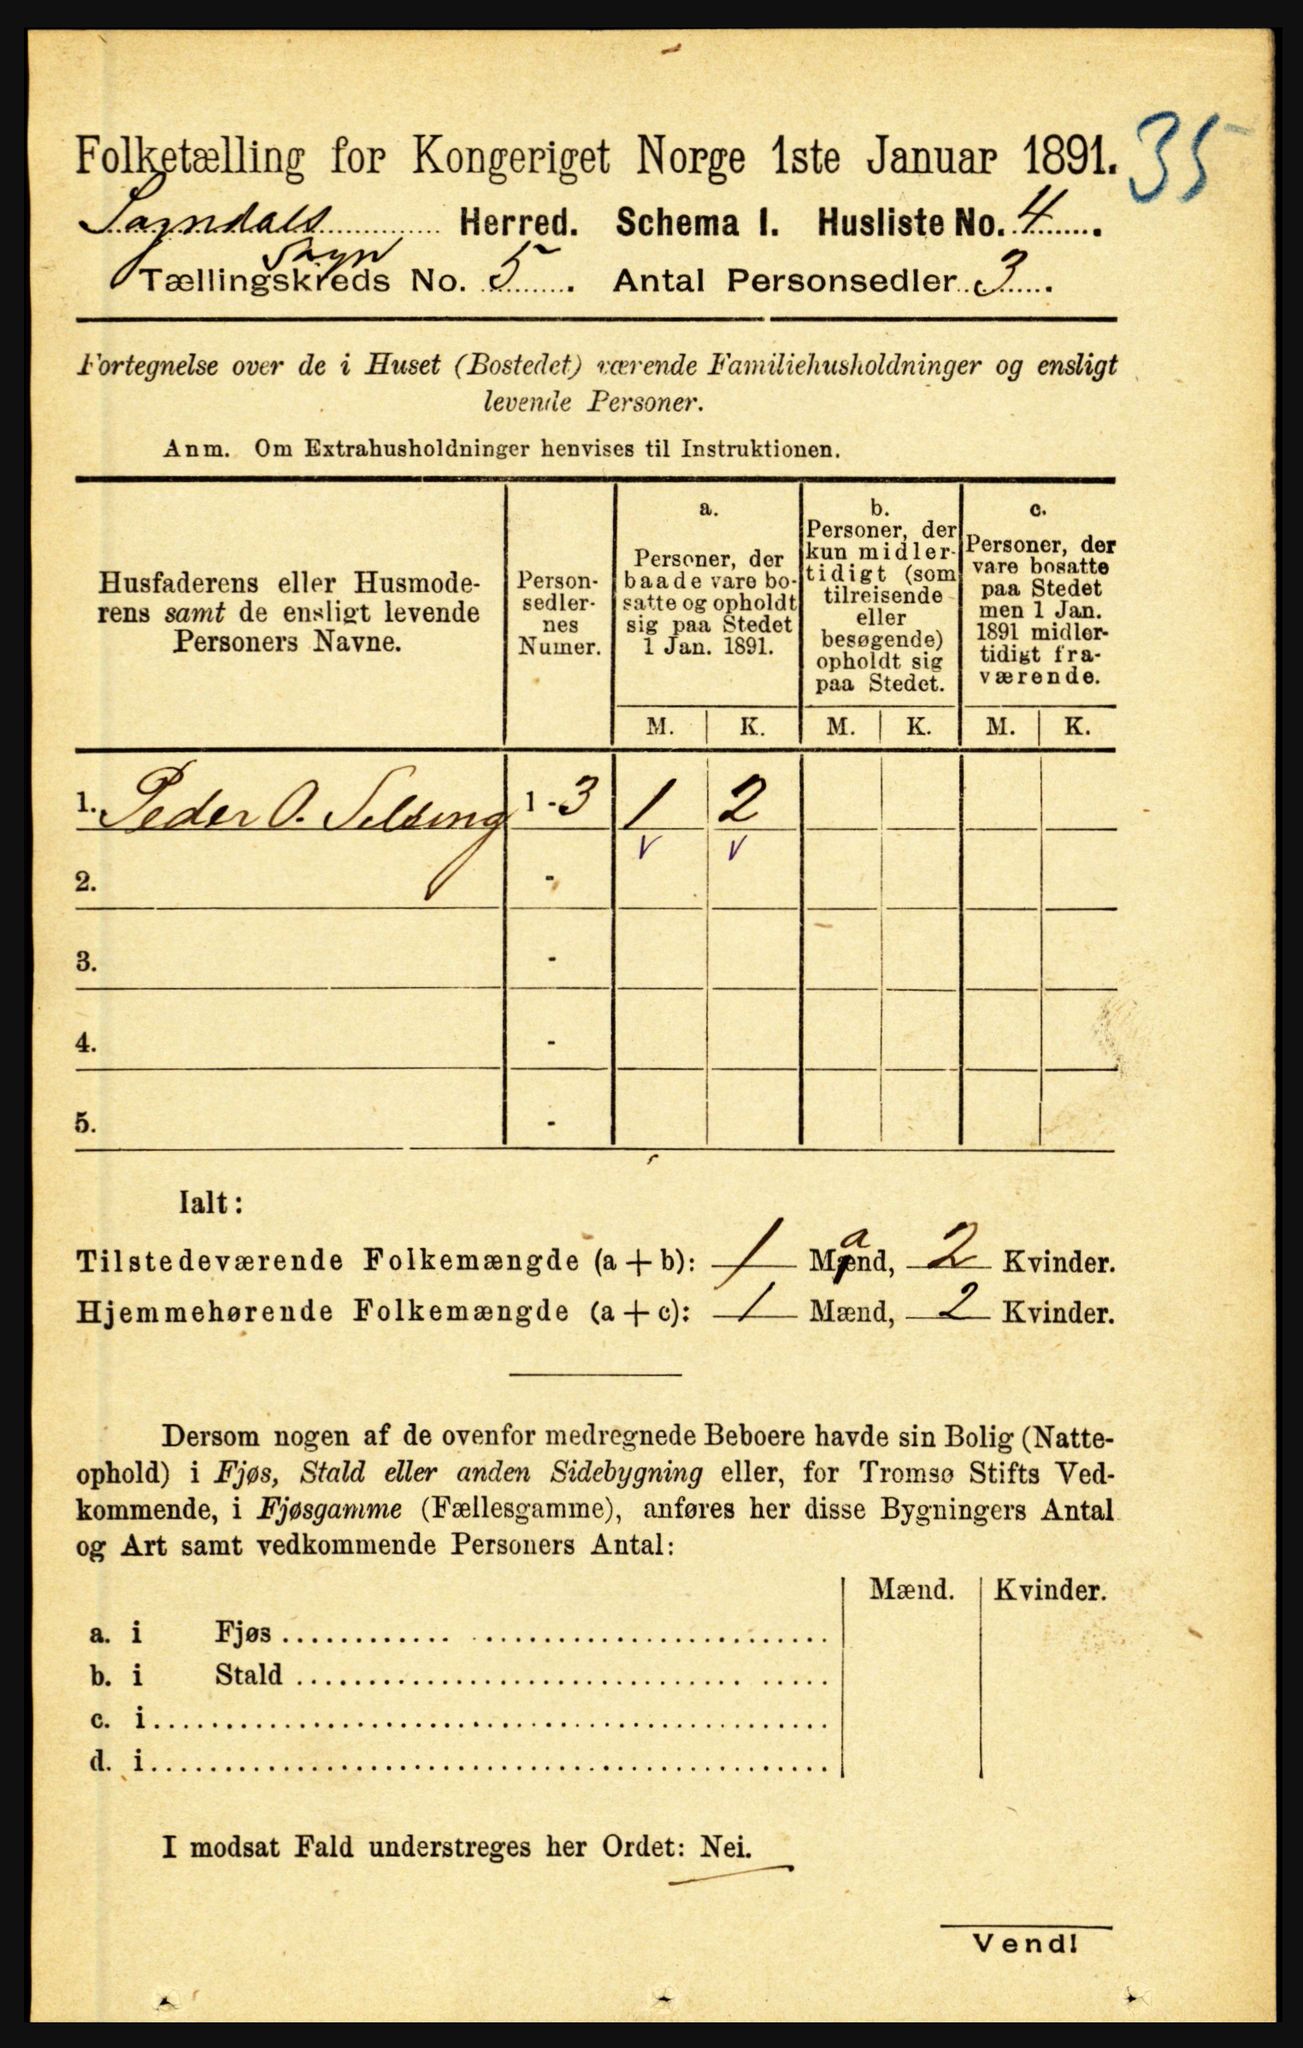 35
Folketælling for Kongeriget Norge 1ste Januar 1891.
Sogndals Herred. Schema I. Husliste No. 4.
Sogn
Tællingskreds No. 5. Antal Personsedler 3.
Fortegnelse over de i Huset (Bostedet) værende Familiehusholdninger og ensligt
levende Personer.
Anm. Om Extrahusholdninger henvises til Instruktionen.
Husfaderens eller Husmode-
rens samt de ensligt levende
Personers Navne.
Person-
sedler-
nes
Numer.
a.
Personer, der
baade vare bo-
satte og opholdt
sig paa Stedet
1 Jan. 1891.
b.
Personer, der
kun midler-
tidigt (som
tilreisende
eller
besøgende)
opholdt sig
paa Stedet.
c.
Personer, der
vare bosatte
paa Stedet
men 1 Jan.
1891 midler-
tidigt fra-
værende.
M. K. M. K. M. K.
1. Peder O. Selseng 1 - 3 1 2
v v
2. -
3. -
4. -
5. -
Ialt:
Tilstedeværende Folkemængde (a + b): 1 Mand, 2 Kvinder.
Hjemmehørende Folkemængde (a + c): 1 Mænd, 2 Kvinder.
Dersom nogen af de ovenfor medregnede Beboere havde sin Bolig (Natte-
ophold) i Fjøs, Stald eller anden Sidebygning eller, for Tromsø Stifts Ved-
kommende, i Fjøsgamme (Fællesgamme), anføres her disse Bygningers Antal
og Art samt vedkommende Personers Antal:
Mænd. Kvinder.
a. i Fjøs
b. i Stald
c. i
d. i
I modsat Fald understreges her Ordet: Nei.
Vend!